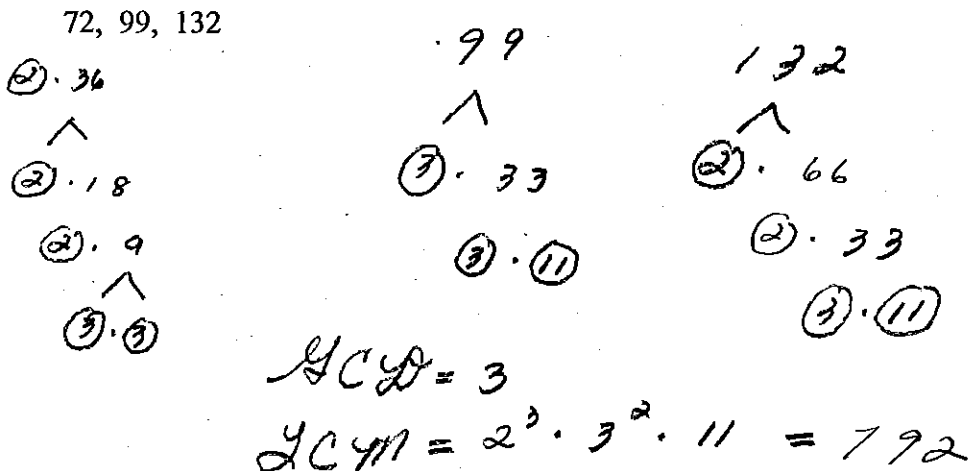 72, 99, 132
2 · 36
2 · 18
2 · 9
3 · 3
99
3 · 33
3 · 11
132
2 · 66
2 · 33
3 · 11
GCD = 3
LCM = 2³ · 3² · 11 = 792